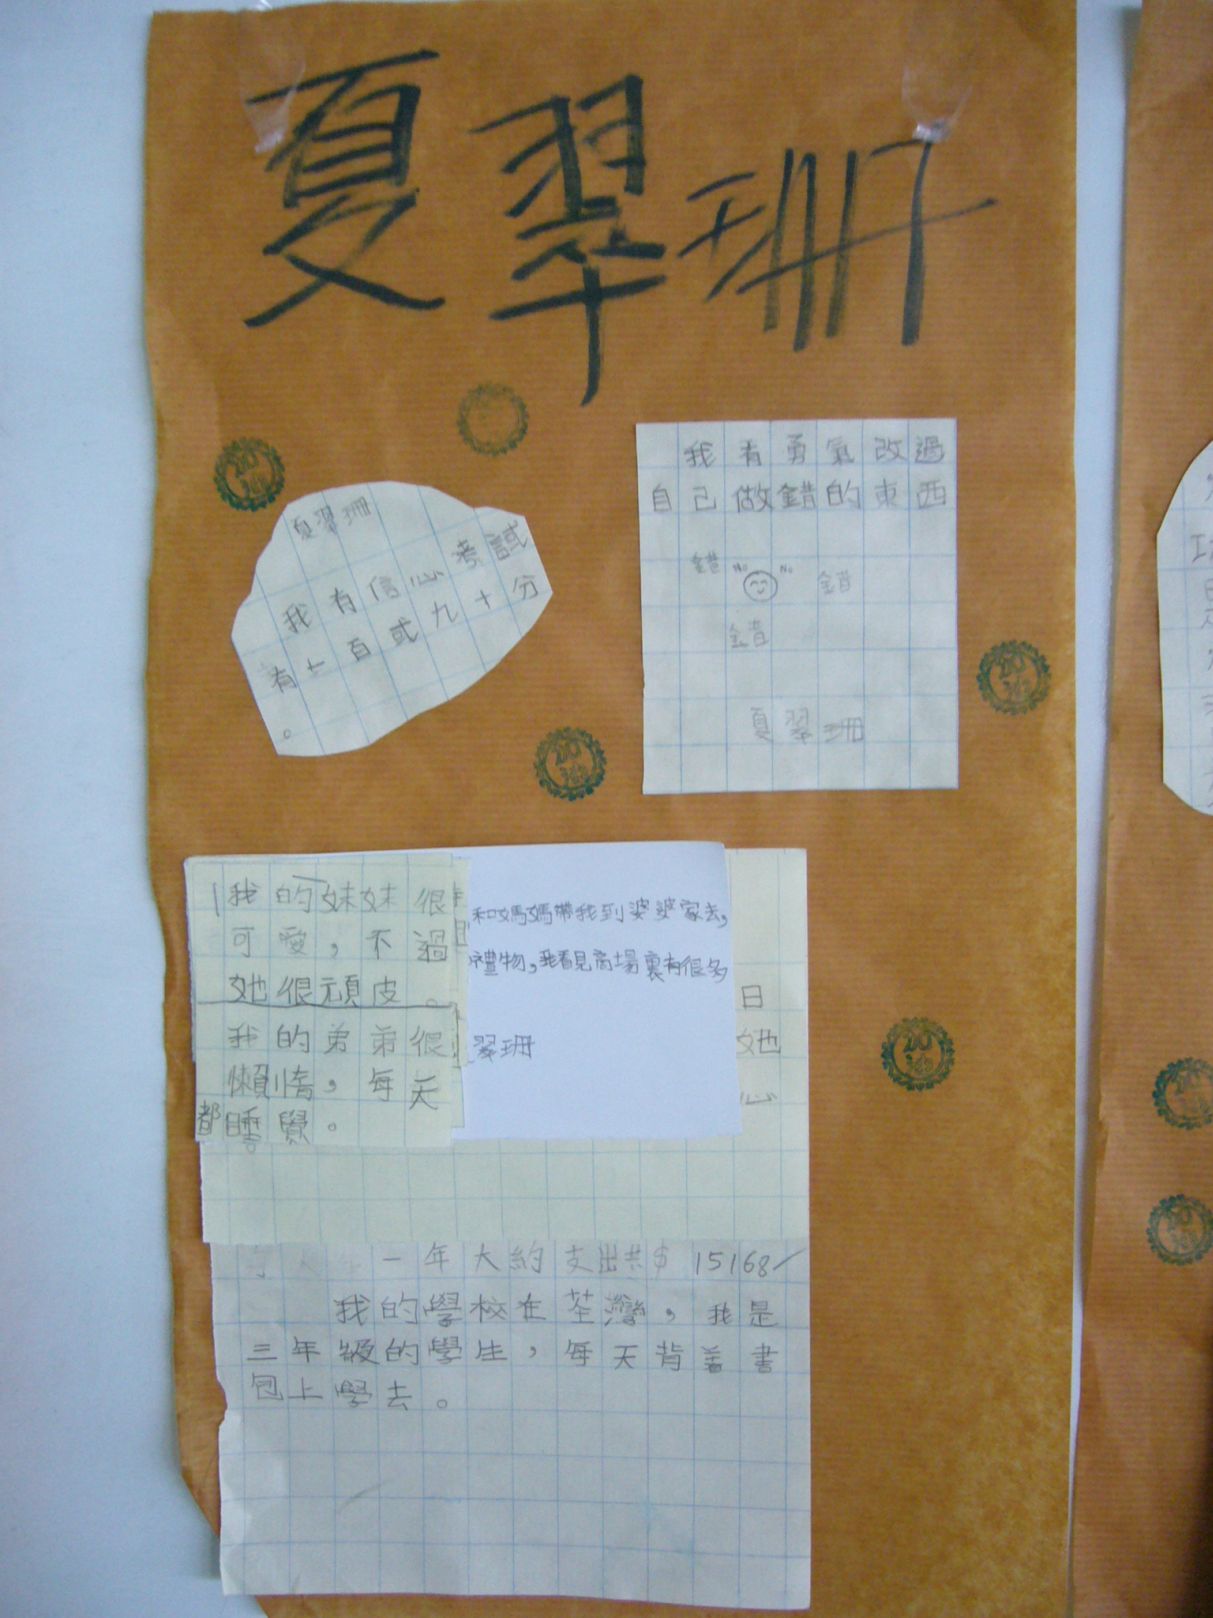 夏翠珊
加油
夏翠珊
我有信心考試
有一百或九十分
。
我有勇氣改過
自己做錯的東西
錯 No No 錯
錯
夏翠珊
加油
加油
我的妹妹很
可愛，不過
她很頑皮。
我的弟弟很
懶惰，每天
都睡覺。
和媽媽帶我到婆婆家去，
禮物，我看見商場裏有很多
翠珊
日
她
心
加油
一年大約支出共$15168/
我的學校在荃灣，我是
三年級的學生，每天背著書
包上學去。
加油
加油